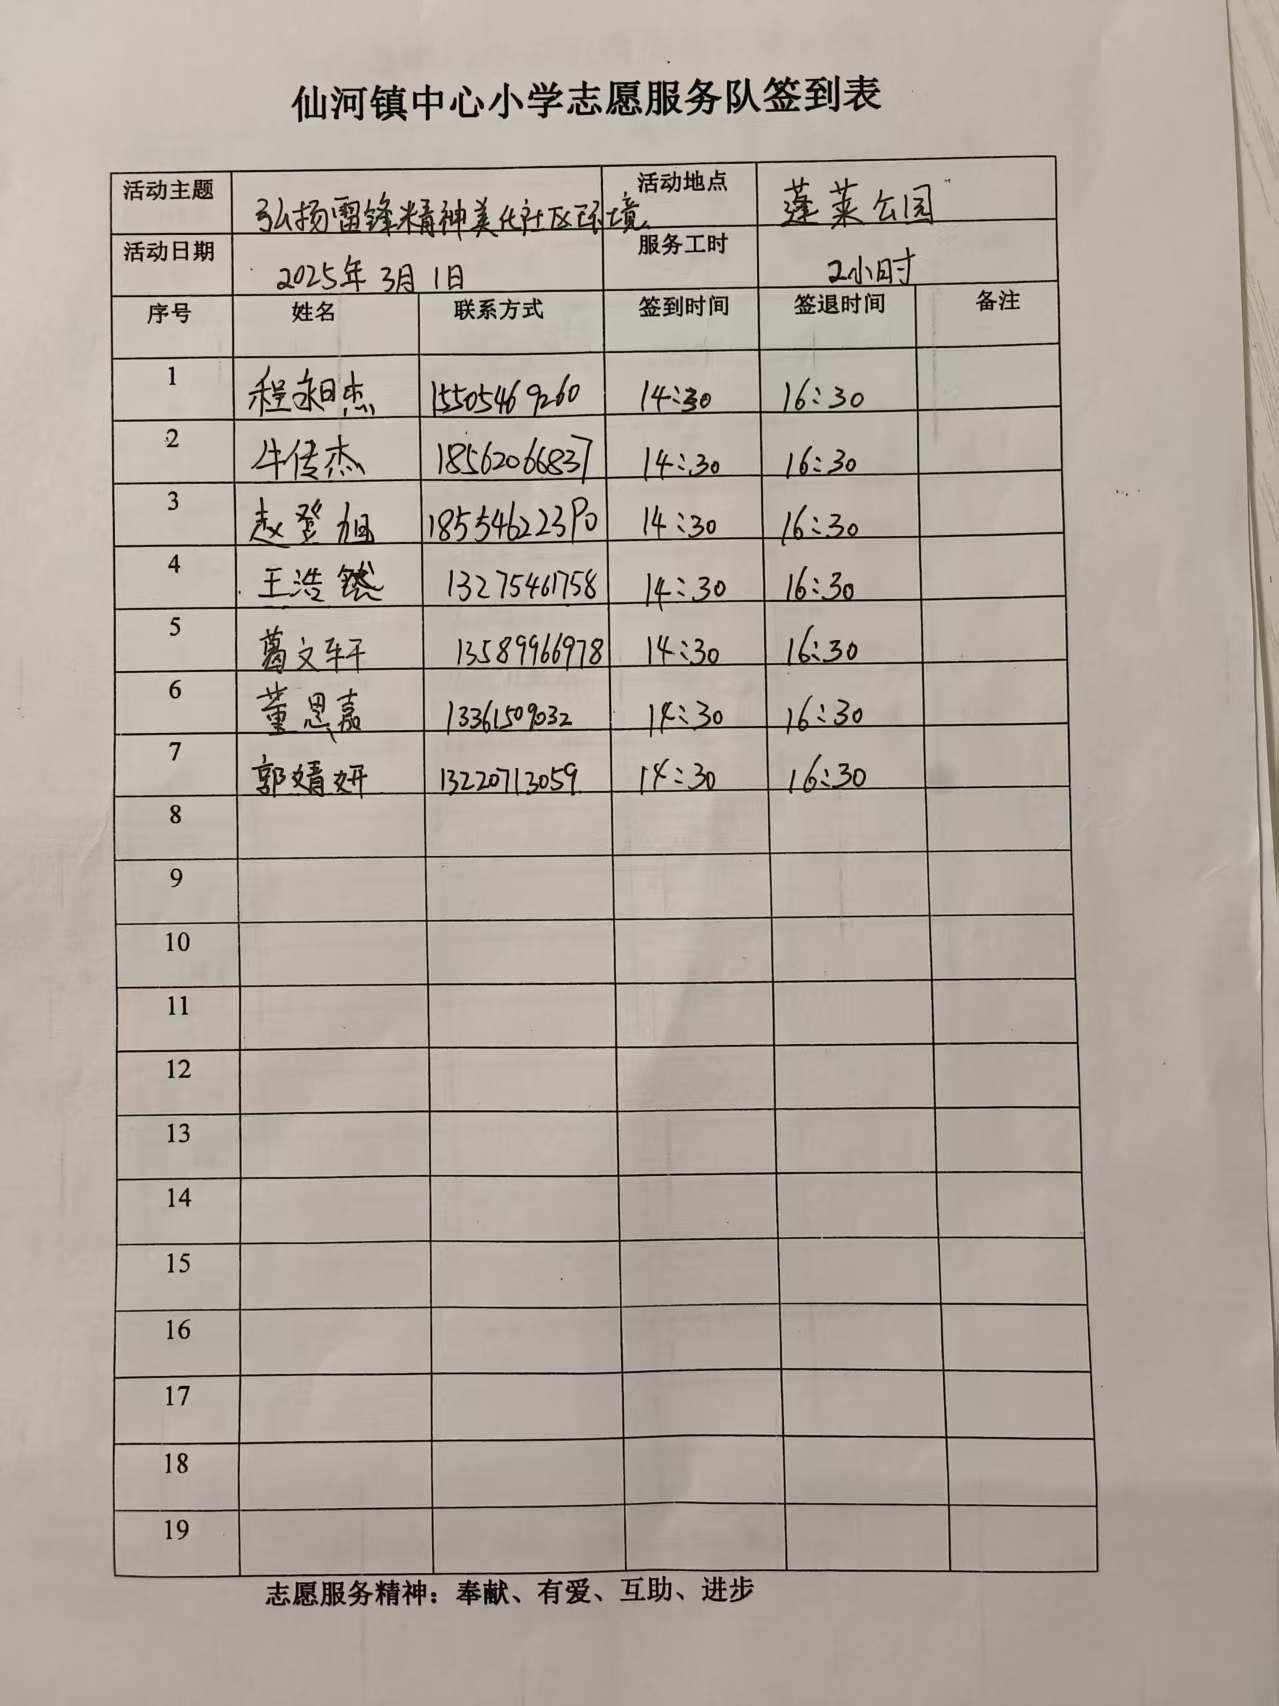 仙河镇中心小学志愿服务队签到表
活动主题 弘扬雷锋精神美化社区环境 活动地点 蓬莱公园
活动日期 2025年3月1日 服务工时 2小时
序号 姓名 联系方式 签到时间 签退时间 备注
1 程昶杰 15505469260 14:30 16:30
2 牛传杰 18562066837 14:30 16:30
3 赵登旭 185546223 14:30 16:30
4 王浩 13275461758 14:30 16:30
5 葛文轩 13589966978 14:30 16:30
6 董恩嘉 13361509032 14:30 16:30
7 郭婧妍 13220713059 14:30 16:30
8
9
10
11
12
13
14
15
16
17
18
19
志愿服务精神：奉献、有爱、互助、进步